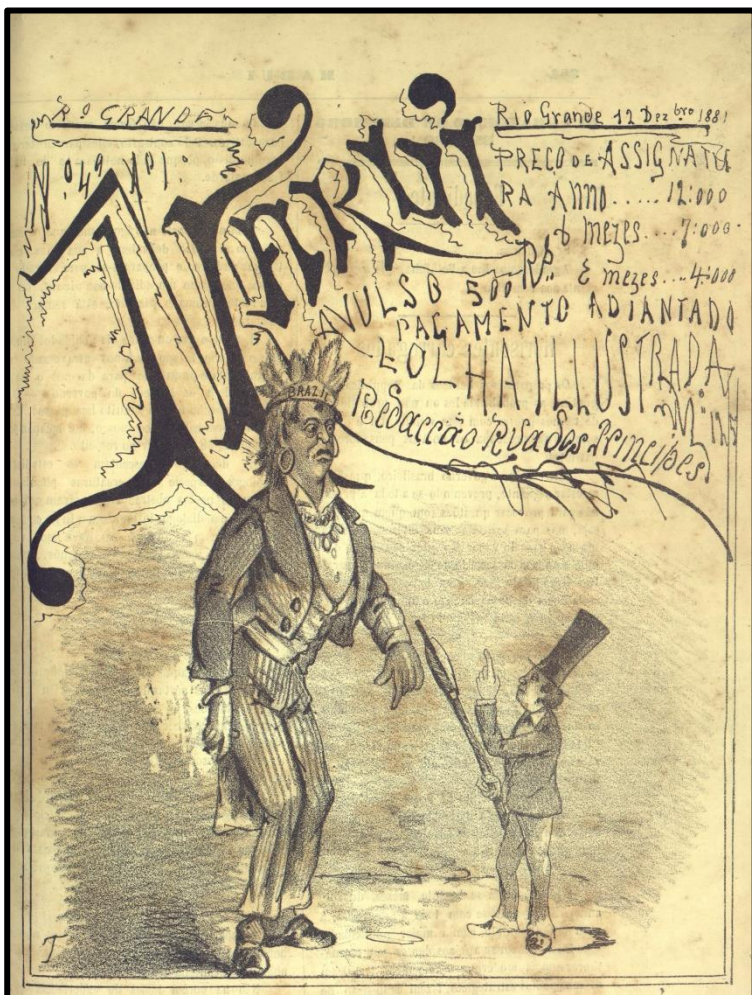 Rº GRANDE
Nº 49 Aº 1º
MARUI
Rio Grande 12 Dezbro 1881
PREÇO DE ASSIGNATU
RA ANNO..... 12:000
6 mezes....7:000
3 mezes...4:000
AVULSO 500 Rs.
PAGAMENTO ADIANTADO
FOLHA ILLUSTRADA
Redacção Rua dos Principes
BRAZIL
T